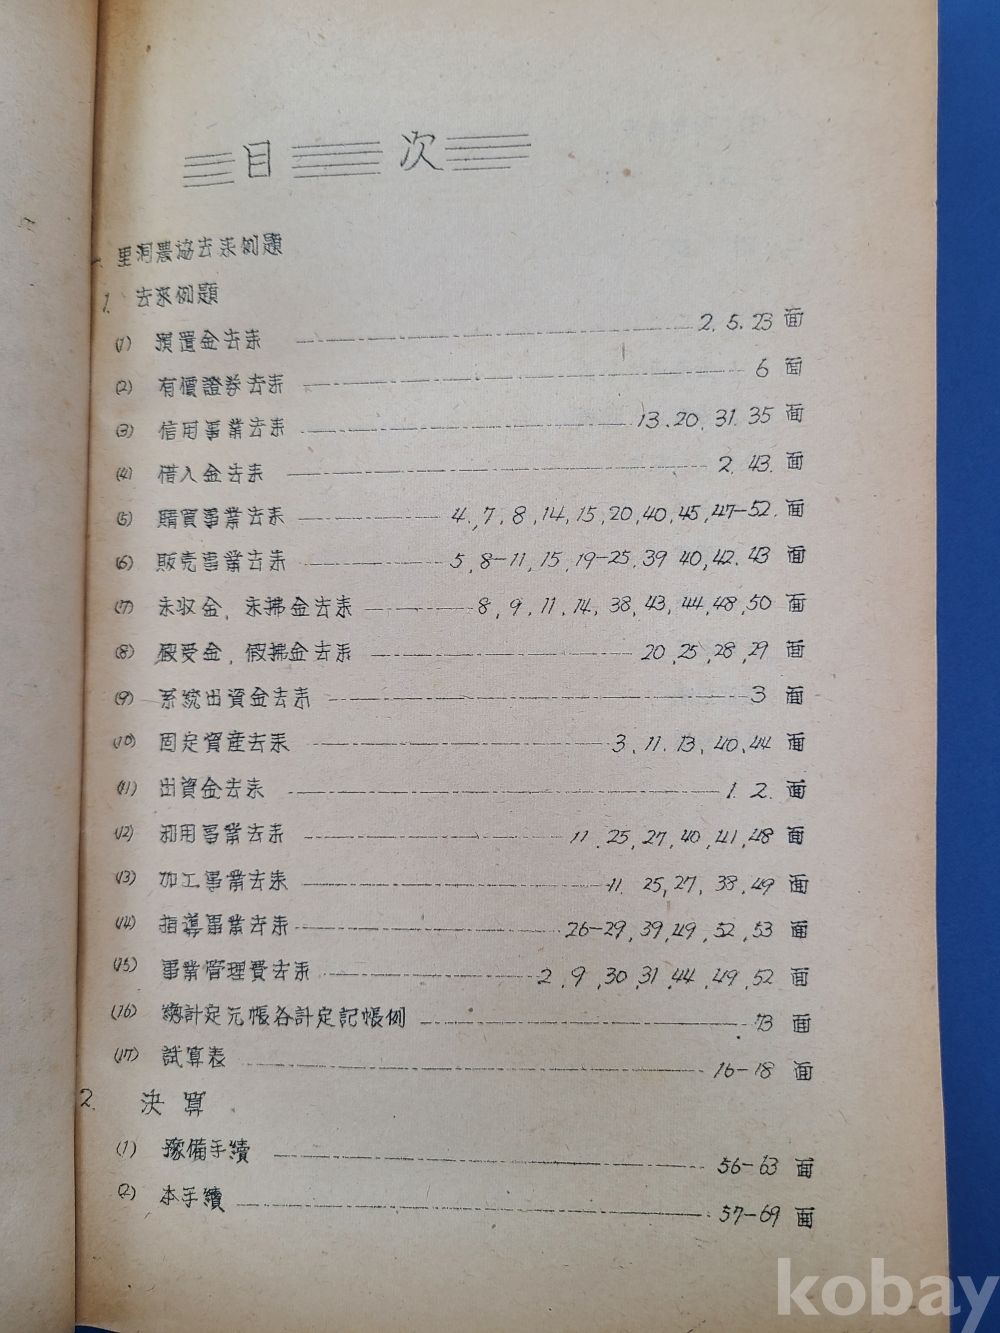 目 次
一. 里洞農協去来例題
1. 去來例題
(1) 預置金去来 2. 5. 23 面
(2) 有價證券去来 6 面
(3) 信用事業去来 13. 20. 31. 35 面
(4) 借入金去来 2. 43. 面
(5) 購買事業去来 4, 7, 8, 14, 15, 20, 40, 45, 47-52. 面
(6) 販売事業去来 5, 8-11, 15, 19-25, 39 40, 42. 43 面
(7) 未収金, 未拂金去来 8, 9, 11, 14, 38, 43, 44, 48, 50 面
(8) 假受金, 假拂金去来 20, 25, 28, 29 面
(9) 系統出資金去来 3 面
(10) 固定資産去来 3, 11. 13, 40, 44 面
(11) 出資金去来 1. 2. 面
(12) 利用事業去来 11. 25, 27, 40, 41, 48 面
(13) 加工事業去来 11. 25, 27, 38, 49 面
(14) 指導事業去来 26-29, 39, 49, 52, 53 面
(15) 事業管理費去来 2, 9, 30, 31, 44, 49, 52 面
(16) 總計定元帳各計定記帳例 73 面
(17) 試算表 16-18 面
2. 決 算
(1) 豫備手續 56-63 面
(2) 本手續 57-69 面
kobay